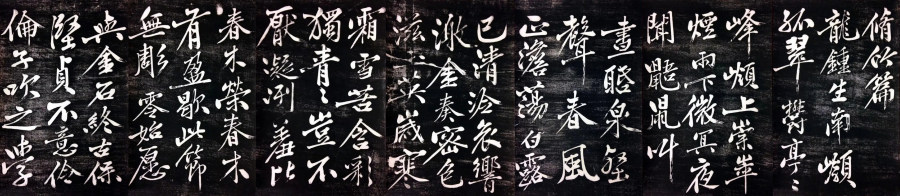 脩竹篇
龍鍾生南嶽
孤翠欝亭〻
峰嶺上崇崒
煙雨下微冥夜
聞鼯鼠叫
晝聒泉壑
聲春風
正澹蕩白露
已清泠哀響
激金奏密色
滋玉英歲寒
霜雪苦含彩
獨青〻豈不
厭凝冽羞比
春木榮春木
有盈歇此節
無彫零始願
與金石終古保
堅貞不意伶
倫子吹之學